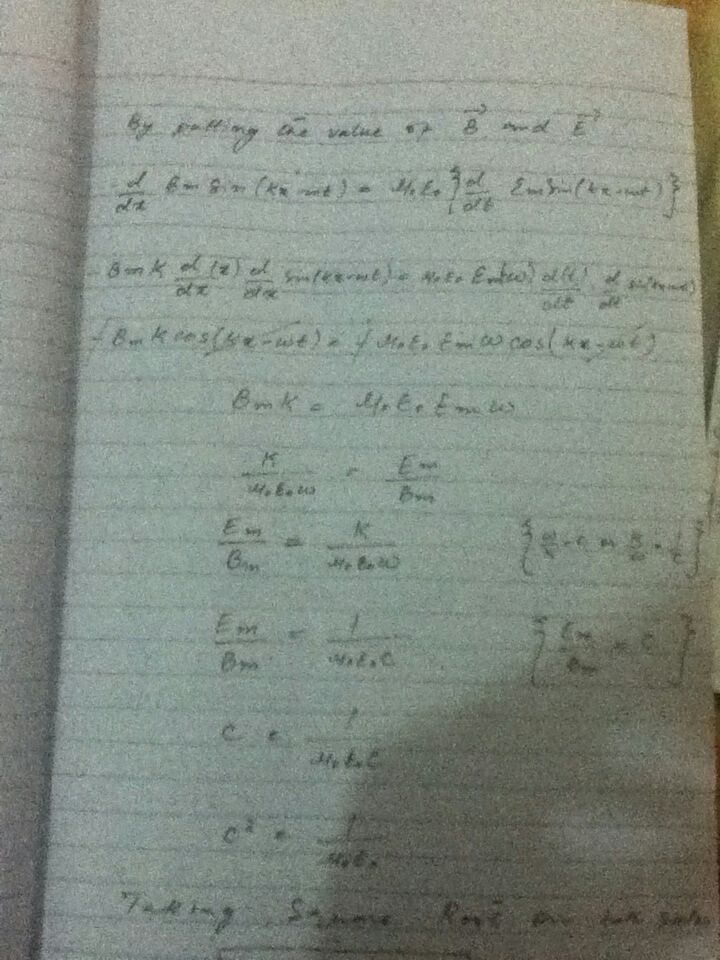 By putting the value of B⃗ and E⃗
-d/dx Bm Sin (kx-wt) = M₀ε₀ { d/dt Em Sin (kx-wt) }
-Bm K d(x)/dx d/dx sin(kx-wt) = M₀ε₀ Em(w) d(t)/dt d/dt sin(kx-wt)
-Bm K cos(kx-wt) = -M₀ε₀ Em w cos(kx-wt)
Bm K = M₀ε₀ Em w
K/M₀ε₀w = Em/Bm
Em/Bm = K/M₀ε₀w { w/k = c or k/w = 1/c }
Em/Bm = 1/M₀ε₀C { Em/Bm = C }
C = 1/M₀ε₀C
C² = 1/M₀ε₀
Taking Square Root on